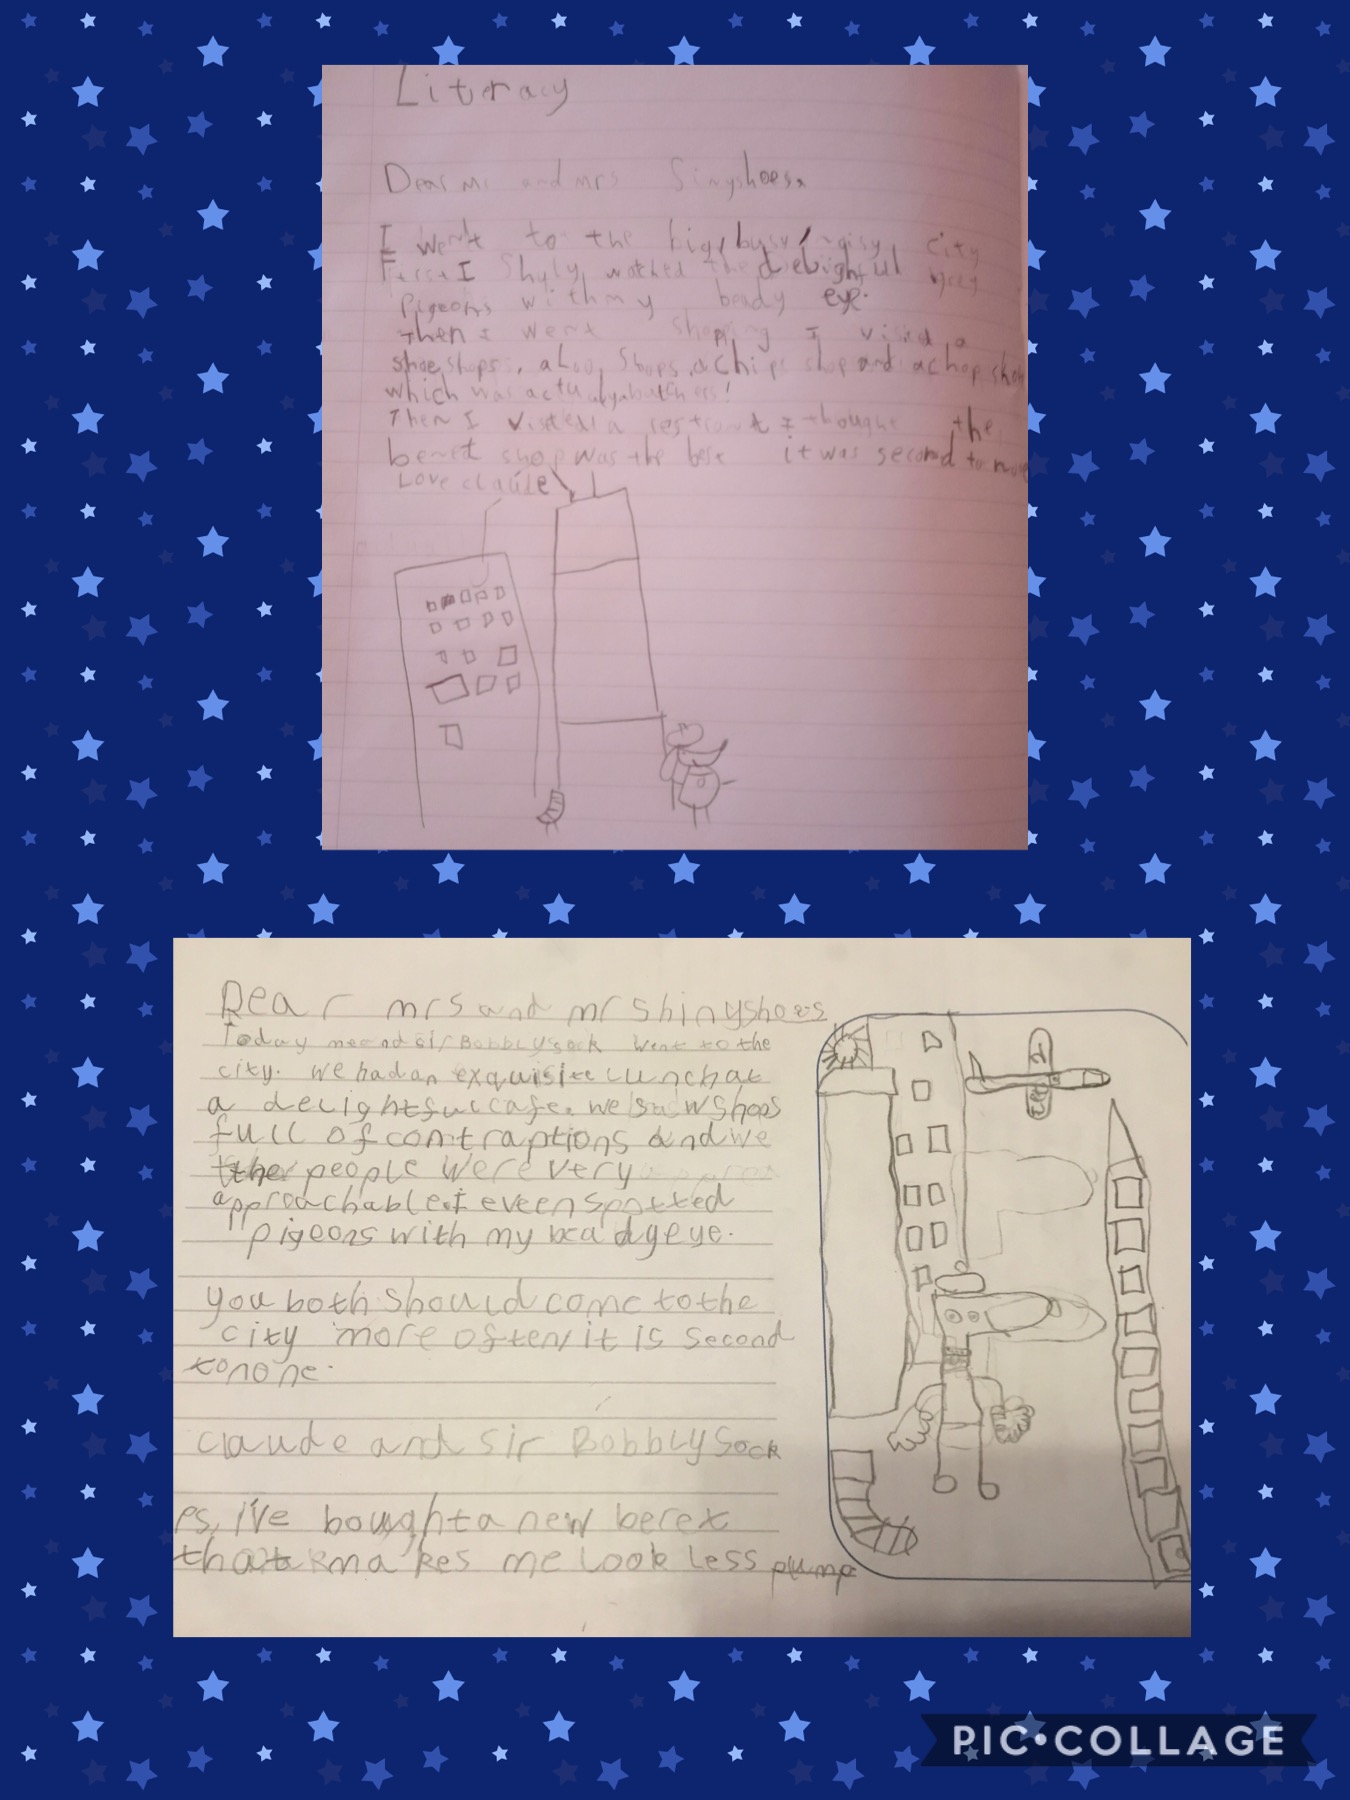 Literacy
Dear Mr and mrs Sinyshoes,
I went to the big, busy, noisy city
First I Shyly watched the delightful grey
pigeons with my beady eye.
Then I went shopping I visted a
shoe shops, a Loo Shops, a Chips shop and a chop shop
which was actualy a butchers!
Then I visted a restront I thought the
beret shop was the best it was second to none
Love claude
Dear mrs and mr shinyshoes
Today me and sir Bobblysock went to the
city. we had an exquisite lunch at
a delightful cafe. we saw shops
full of contraptions and we
the people were very
approachable. I eveen spotted
pigeons with my beadyeye.
you both should come to the
city more often it is second
to none.
claude and sir Bobblysock
Ps, i've bought a new beret
that makes me look less plump
PIC•COLLAGE